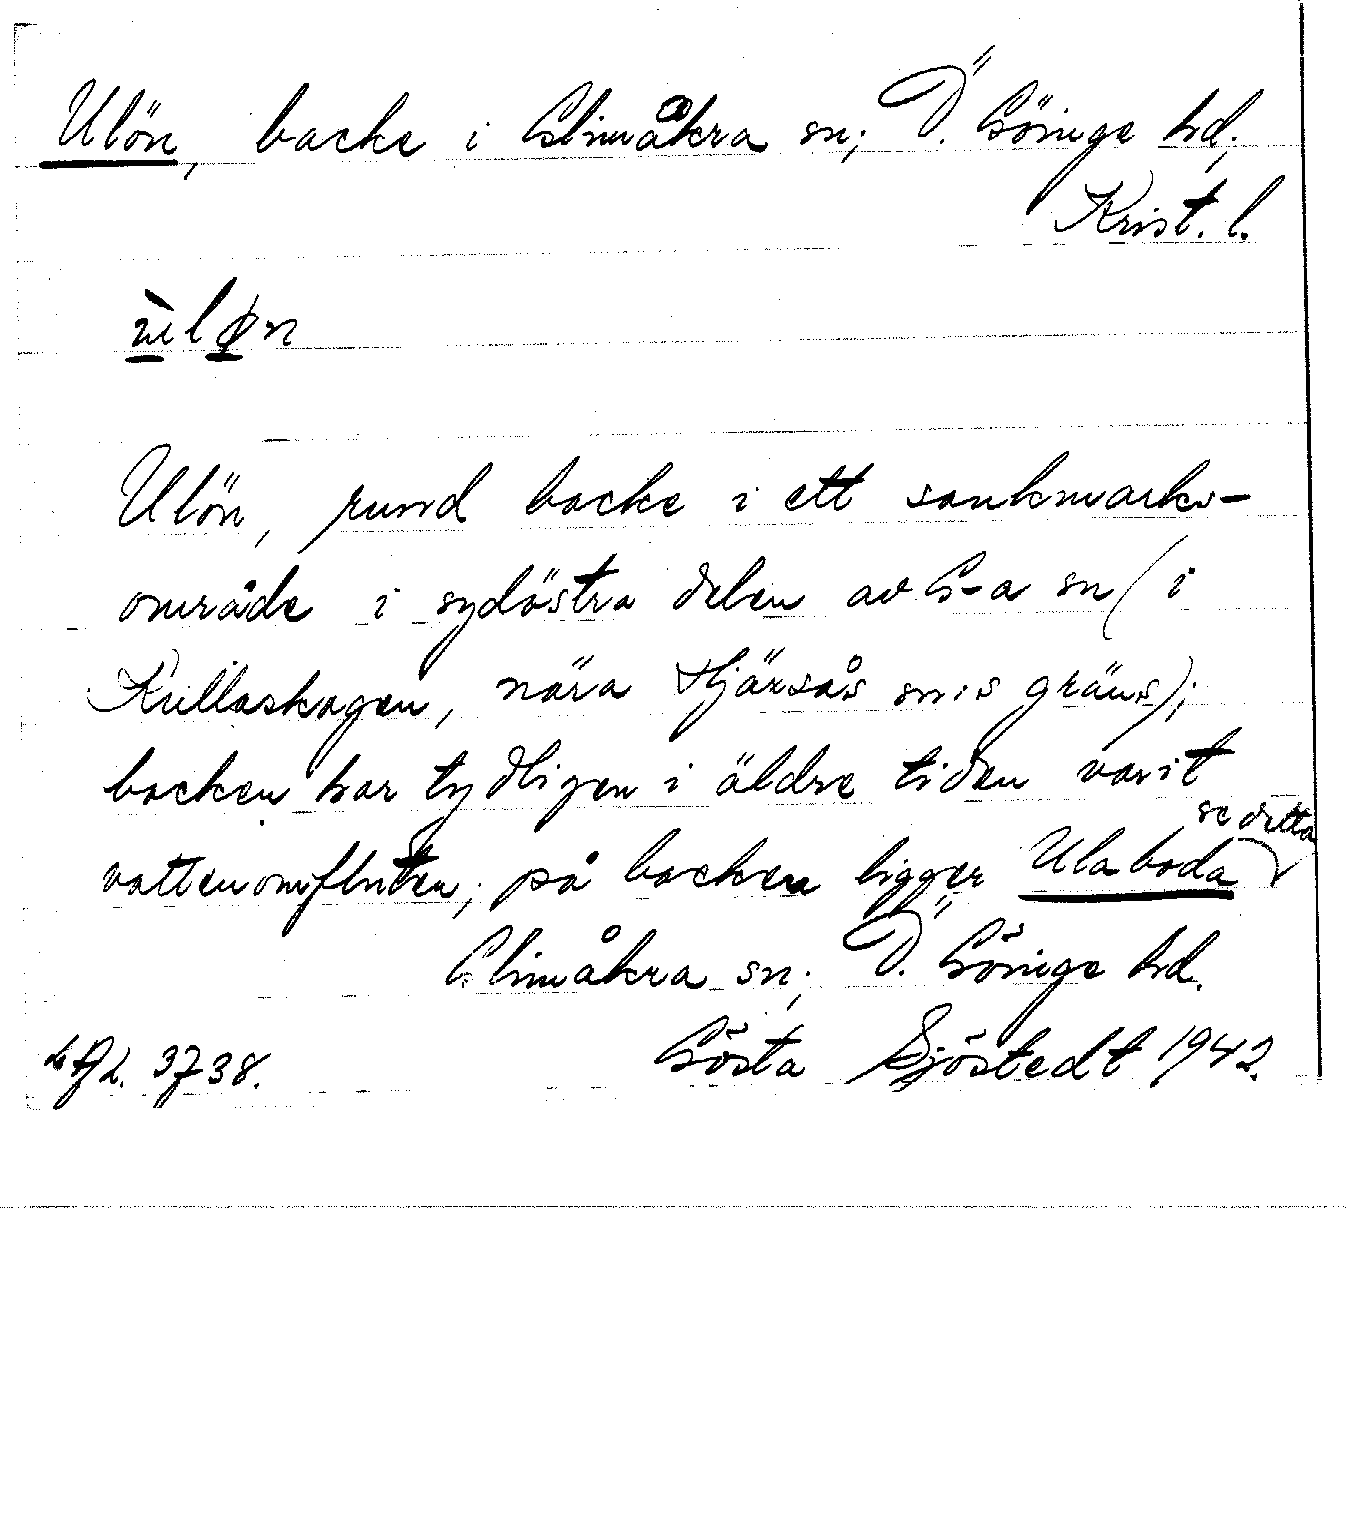 Ulön, backe i Glimåkra sn; Ö. Göinge hd;
Krist. l.
ùløn
Ulön, rund backe i ett sankmarks-
område i sydöstra delen av G-a sn (i
Kullaskogen, nära Hjärsås sn:s gräns);
backen har tydligen i äldre tiden varit
se detta
vattenomfluten; på backen ligger Ulaboda
Glimåkra sn; Ö. Göinge hd.
3738. Gösta Sjöstedt 1942.